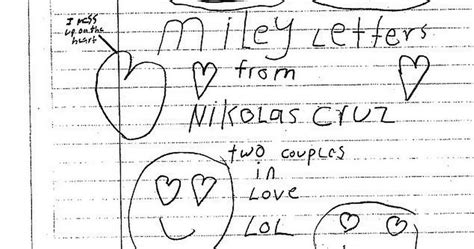 I mess
up on the
heart
Miley Letters
from
Nikolas Cruz
two couples
in
Love
LOL